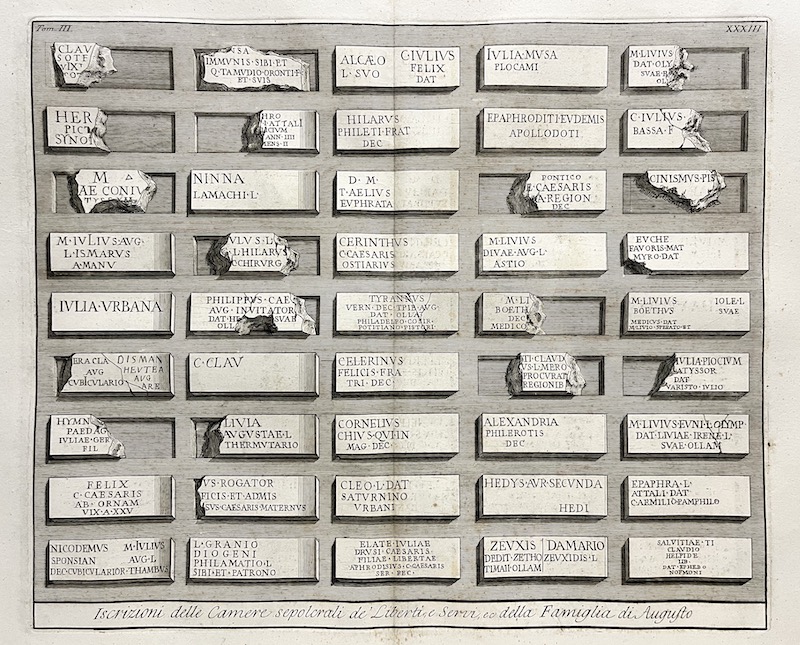 Tom. III.
XXXIII
CLAV
SOTE
VIX
NSA
IMMVNIS·SIBI·ET
Q·TAMVDIO·ORONTI·F
ET·SVIS
ALCÆO C·IVLIVS
L·SVO FELIX
DAT
IVLIA·MVSA
PLOCAMI
M·LIVIVS
DAT·OLY
SVAE·R
OL
HER
PICT
SYNOI
HRO
ATTALI
ICIVM
ANN·IIII
MENS·II
HILARVS
PHILETI·FRAT
DEC
EPAPHRODITI·EVDEMIS
APOLLODOTI
C·IVLIVS·
BASSA·F
M
AE CONIV
NINNA
LAMACHI·L·
D·M·
T·AELIVS
EVPHRATA
PONTICO
CAESARIS
A·REGION
DEC
CINISMVS·PIS
M·IVLIVS·AVG·
L·ISMARVS
A·MANV
VLVS·L
L·HILARVS
CHIRVRG
CERINTHVS
C·CAESARIS
OSTIARIVS
M·LIVIVS
DIVAE·AVG·L
ASTIO
EVCHE
FAVORIS·MAT
MYRO·DAT
IVLIA·VRBANA
PHILIPPVS·CAE
AVG·INVITATOR
SVAE
OLL
TYRANNVS
VERN·DEC·TPIB·AVG
DAT·OLLAM
PHILADELPO·COMR·
POTITIANO·PISTORI
M·LI
BOETH
DEC
MEDICO
M·LIVIVS IOLE·L
BOETHVS SVAE
MEDICVS·DAT
M·LIVIO·SPERATO·ET
ERA·CLA DISMAN
AVG HEVTEA
CVBICVLARIO AVG
ARE
C·CLAV
CELERINVS
FELICIS·FRA
TRI·DEC·
TI·CLAVD
VS·L·MERO
PROCVRAT
REGIONIB
IVLIA·PIOCIVM
LATYSSOR
DAT
VARISTO·IVLIO
HYMN
PAEDAG
IVLIAE·GER
FIL
LIVIA
AVGVSTAE·L
THERMVTARIO
CORNELIVS
CHIVS·QVI·IN
MAG·DEC
ALEXANDRIA
PHILEROTIS
DEC
M·LIVIVS·EVNI·L·OLYMP·
DAT·LIVIAE·IRENE·L·
SVAE·OLLAM
FELIX
C·CAESARIS
AB·ORNAM
VIX·A·XXV
VS·ROGATOR
FICIS·ET·ADMIS
SVS·CAESARIS·MATERNVS
CLEO·L·DAT
SATVRNINO
VRBANI
HEDYS·AVR·SECVNDA
HEDI
EPAPHRA·L·
ATTALI·DAT
C·AEMILIO·PAMPHILO
NICODEMVS M·IVLIVS
SPONSIAN AVG·L
DEC·CVBICVLARIOR·THAMBVS
L·GRANIO
DIOGENI
PHILAMATIO·L
SIBI·ET·PATRONO
ELATE·IVLIAE
DRVSI·CAESARIS·
FILIAE·LIBERTAE
APHRODISIVS·C·CAESARIS
SER·FEC·
ZEVXIS DAMARIO
DEDIT·ZETHO ZEVXIDIS·L
TIMAII·OLLAM
SALVITIAE·TI
CLAVDIO
HELPIDE
LIB
DAT·EPHEBO
NOFMONI
Iscrizioni delle Camere sepolcrali de' Liberti e Servi, ec della Famiglia di Augusto